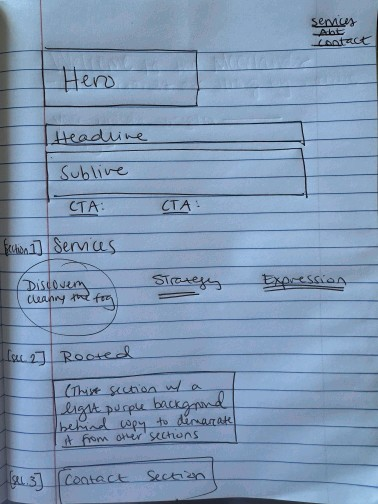 Services
Abt
Contact
Hero
Headline
Subline
CTA: CTA:
[Section 1] Services
Discovery
cleanny the fog
Strategy
Expression
[sec. 2] Rooted
(This section w/ a
light purple background
behind copy to demarcate
it from other sections
[sec. 3] Contact Section